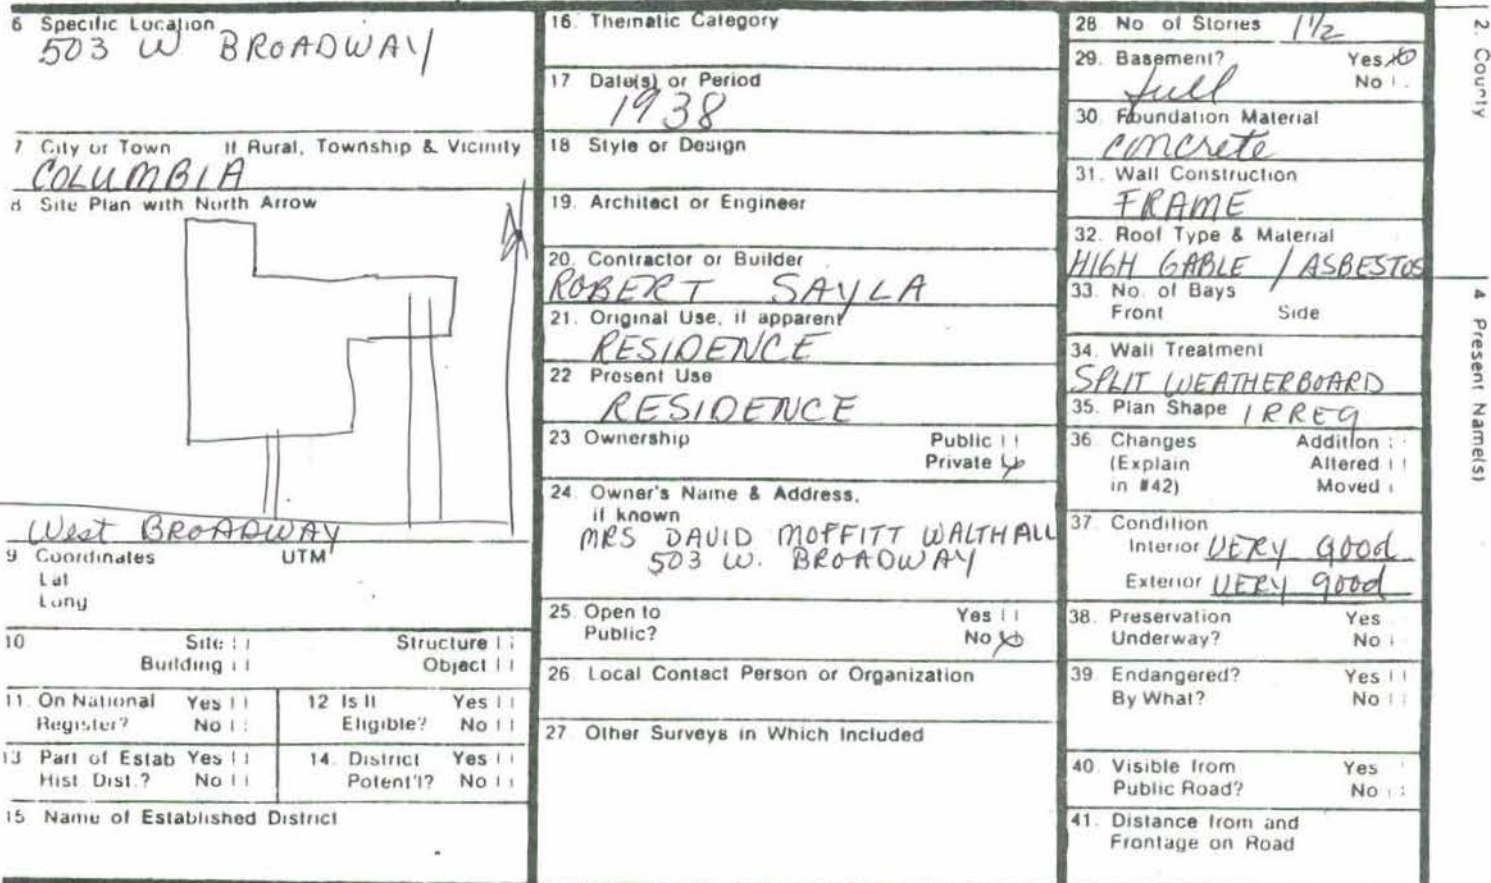 6 Specific Location
503 W BROADWAY
7 City or Town If Rural, Township & Vicinity
COLUMBIA
8 Site Plan with North Arrow
N
West BROADWAY
9 Coordinates UTM
Lat
Long
10 Site Structure
Building Object
11. On National Register? Yes No
12 Is It Eligible? Yes No
13 Part of Estab Hist. Dist.? Yes No
14. District Potent'l? Yes No
15 Name of Established District
16. Thematic Category
17 Date(s) or Period
1938
18 Style or Design
19. Architect or Engineer
20. Contractor or Builder
ROBERT SAYLA
21. Original Use, if apparent
RESIDENCE
22 Present Use
RESIDENCE
23 Ownership Public
Private
24. Owner's Name & Address,
if known
MRS DAVID MOFFITT WALTHALL
503 W. BROADWAY
25. Open to Yes
Public? No
26. Local Contact Person or Organization
27. Other Surveys in Which Included
28. No of Stories 1 1/2
29. Basement? Yes
full No
30 Foundation Material
concrete
31. Wall Construction
FRAME
32. Roof Type & Material
HIGH GABLE / ASBESTOS
33. No. of Bays
Front Side
34. Wall Treatment
SPLIT WEATHERBOARD
35. Plan Shape IRREG
36. Changes Addition
(Explain Altered
in #42) Moved
37. Condition
Interior VERY good
Exterior VERY good
38. Preservation Yes
Underway? No
39. Endangered? Yes
By What? No
40. Visible from Yes
Public Road? No
41. Distance from and
Frontage on Road
2. County
4 Present Name(s)